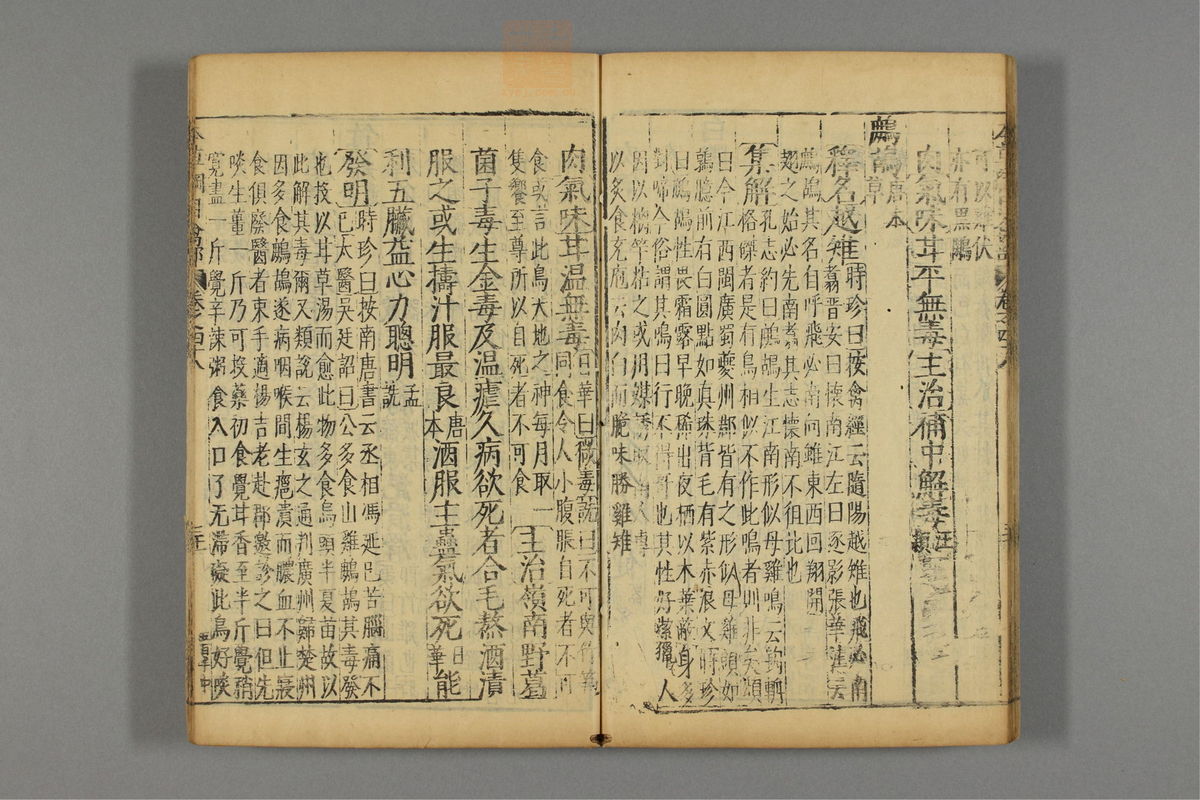 亦有黑鷓
肉氣味甘平無毒主治補中解毒汪穎
鷓鴣唐本草
釋名越雉時珍曰按禽經云隨陽越雉也飛必南
翥晉安曰懷南江左曰逐影張華註云
鷓鴣其名自呼飛必南向雖東西回翔開
翅之始必先南翥其志懷南不徂北也
集解孔志約曰鷓鴣生江南形似母雞鳴云鉤輈
格磔者是有鳥相似不作此鳴者則非矣頌
曰今江西閩廣蜀夔州郡皆有之形似母雞頭如
鶉臆前有白圓點如真珠背毛有紫赤浪文時珍
曰鷓鴣性畏霜露早晚稀出夜栖以木葉蔽身多
對啼今俗謂其鳴曰行不得哥也其性好潔獵人
因以檎竿粘之或用媒誘取南人專
以炙食充庖云肉白而脆味勝雞雉
肉氣味甘溫無毒日華曰微毒詵曰不可與竹筍
同食令人小腹脹自死者不可
食或言此鳥天地之神每月取一
隻饗至尊所以自死者不可食主治嶺南野葛
菌子毒生金毒及溫瘧久病欲死者合毛熬酒漬
服之或生擣汁服最良唐本酒服主蠱氣欲死日華能
利五臟益心力聰明孟詵
發明時珍曰按南唐書云丞相馮延巳苦腦痛不
已太醫吳廷詔曰公多食山雞鷓鴣其毒發
也投以甘草湯而愈此物多食烏頭半夏苗故以
此解其毒爾又類說云楊玄之通判廣州歸楚州
因多食鷓鴣遂病咽喉間生癰潰而膿血不止寢
食俱廢醫者束手適楊吉老赴郡邀診之曰但先
啖生薑一斤乃可投藥初食覺甘香至半斤覺稍
寬盡一斤覺辛辣粥食入口了无滯礙此鳥好啖